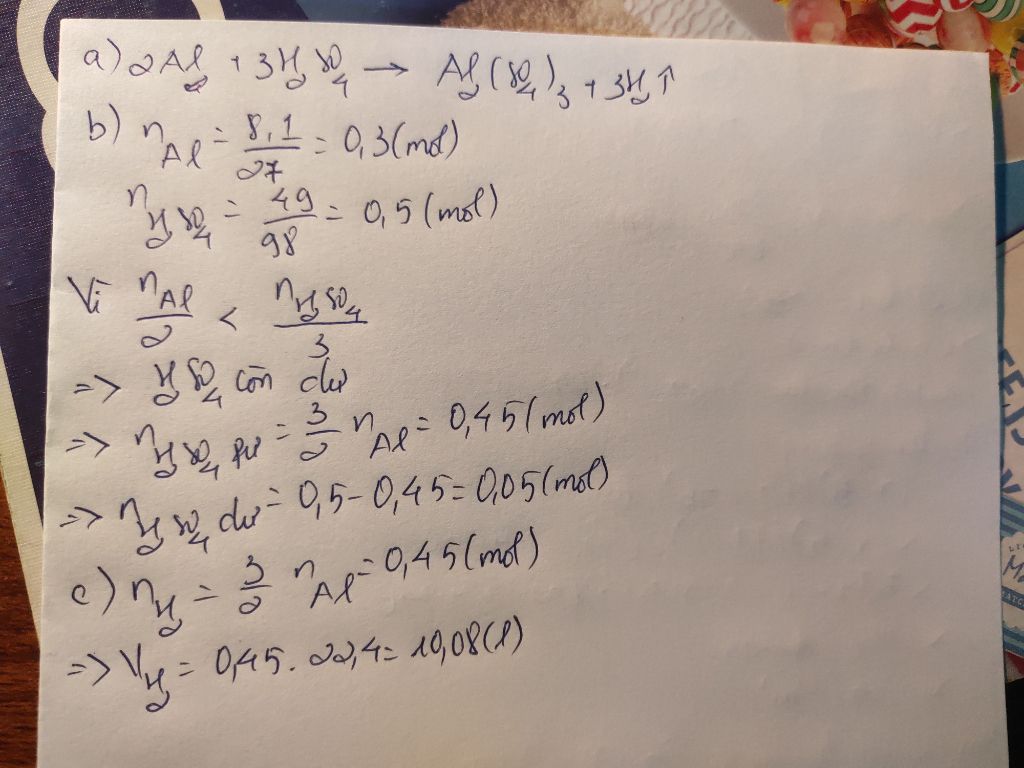 a) 2Al + 3H₂SO₄ → Al₂(SO₄)₃ + 3H₂↑
b) n_Al = 8,1/27 = 0,3 (mol)
n_H₂SO₄ = 49/98 = 0,5 (mol)
Vì n_Al/2 < n_H₂SO₄/3
=> H₂SO₄ còn dư
=> n_H₂SO₄ pư = 3/2 n_Al = 0,45 (mol)
=> n_H₂SO₄ dư = 0,5 - 0,45 = 0,05 (mol)
c) n_H₂ = 3/2 n_Al = 0,45 (mol)
=> V_H₂ = 0,45 . 22,4 = 10,08 (l)